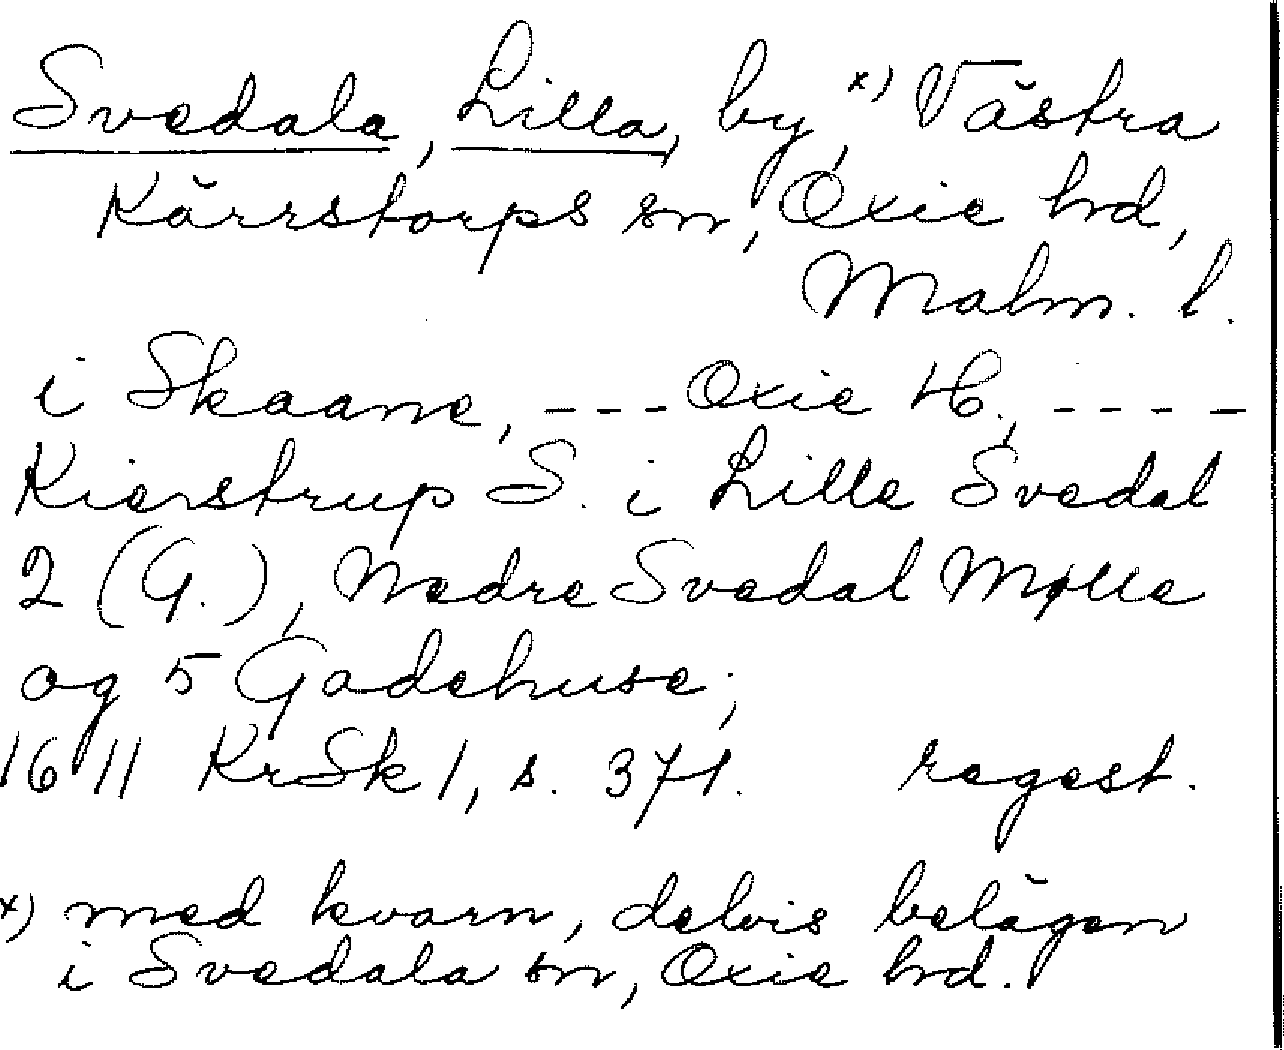 Svedala, Lilla, by, x) Västra
Kärrstorps sn, Oxie hrd,
Malm. l.
i Skaane, --- Oxie H., ----
Kierstrup S. i Lille Svedal
2 (G.), Nedre Svedal Mølle
og 5 Gadehuse;
1611 KrSk 1, s. 371. regest.
x) med kvarn, delvis belägen
i Svedala sn, Oxie hrd.